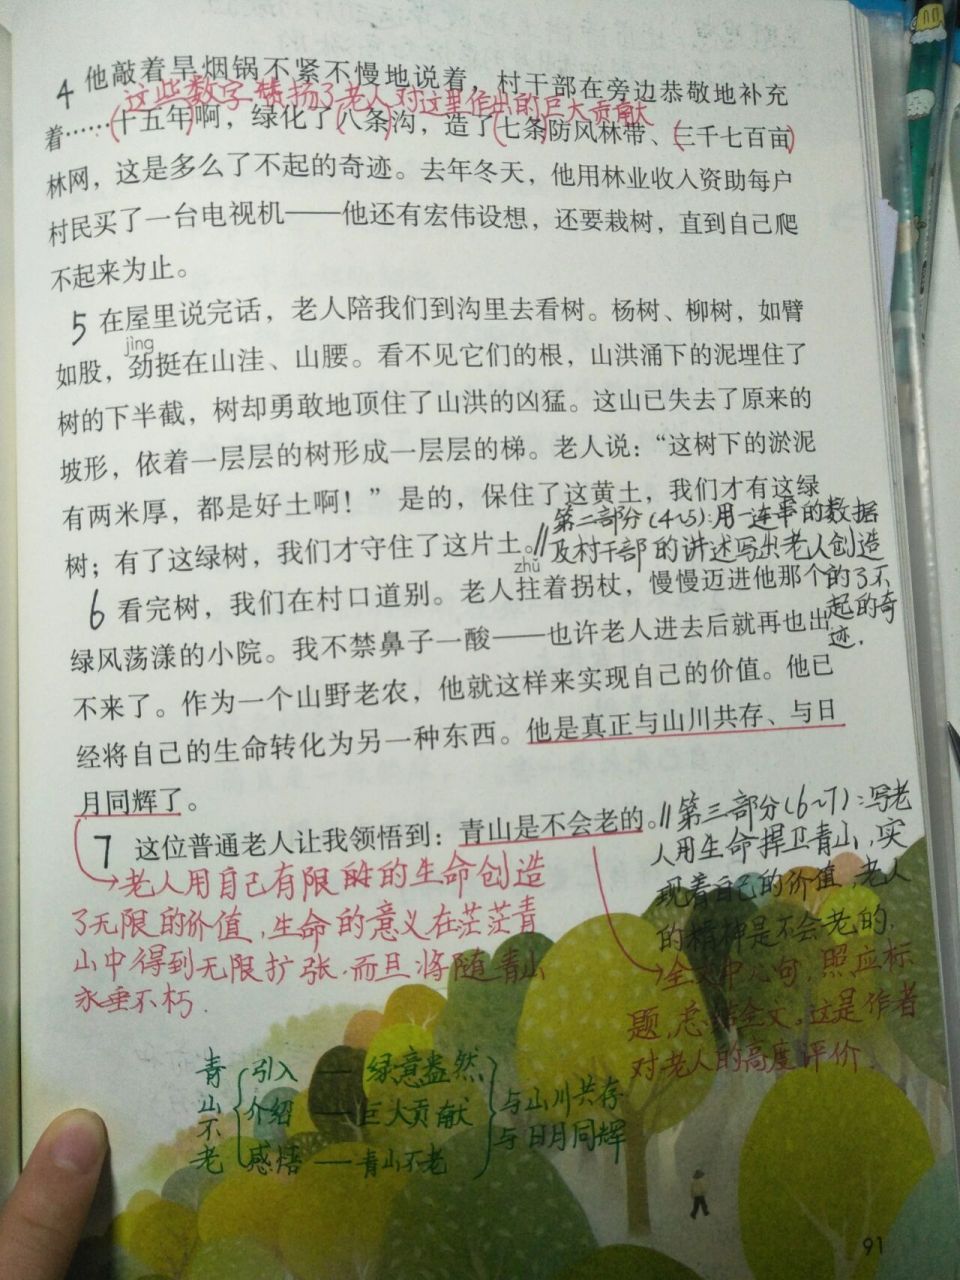 4 他敲着旱烟锅不紧不慢地说着，村干部在旁边恭敬地补充
这些数字赞扬了老人对这里作出的巨大贡献
着……(十五年)啊，绿化了(八条)沟，造了(七条)防风林带、(三千七百亩)
林网，这是多么了不起的奇迹。去年冬天，他用林业收入资助每户
村民买了一台电视机——他还有宏伟设想，还要栽树，直到自己爬
不起来为止。
5 在屋里说完话，老人陪我们到沟里去看树。杨树、柳树，如臂
jìng
如股，劲挺在山洼、山腰。看不见它们的根，山洪涌下的泥埋住了
树的下半截，树却勇敢地顶住了山洪的凶猛。这山已失去了原来的
坡形，依着一层层的树形成一层层的梯。老人说：“这树下的淤泥
有两米厚，都是好土啊！”是的，保住了这黄土，我们才有这绿
树；有了这绿树，我们才守住了这片土。//
第二部分(4~5)：用一连串的数据
及村干部的讲述写出老人创造
的了不
起的奇
迹.
zhǔ
6 看完树，我们在村口道别。老人拄着拐杖，慢慢迈进他那个
绿风荡漾的小院。我不禁鼻子一酸——也许老人进去后就再也出
不来了。作为一个山野老农，他就这样来实现自己的价值。他已
经将自己的生命转化为另一种东西。他是真正与山川共存、与日
月同辉了。
7 这位普通老人让我领悟到：青山是不会老的。//
第三部分(6~7)：写老
人用生命捍卫青山，实
现着自己的价值，老人
的精神是不会老的.
老人用自己有限的生命创造
了无限的价值，生命的意义在茫茫青
山中得到无限扩张.而且将随青山
永垂不朽.
全文中心句，照应标
题，总结全文。这是作者
对老人的高度评价.
青山不老
引入——绿意盎然
介绍——巨大贡献
感悟——青山不老
与山川共存
与日月同辉
91